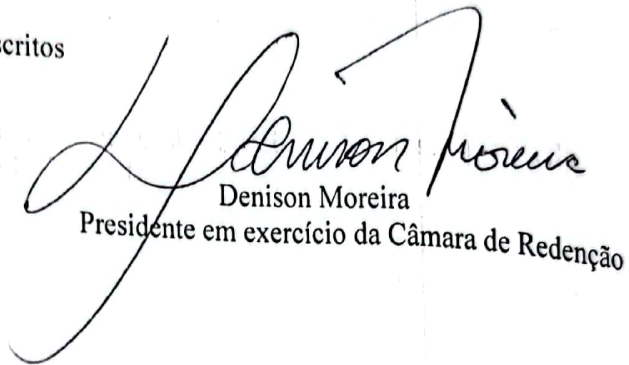 critos
Denison Moreira
Denison Moreira
Presidente em exercício da Câmara de Redenção